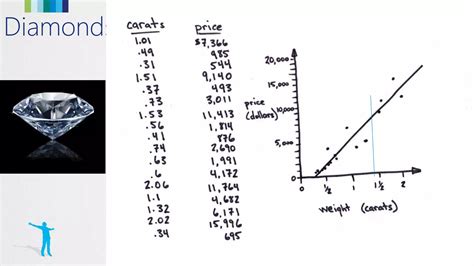 Diamond
carats price
1.01 $7,366
.49 985
.31 544
1.51 9,140
.37 493
.73 3,011
1.53 11,413
.56 1,814
.41 876
.74 2,690
.63 1,991
.6 4,172
2.06 11,764
1.1 4,682
1.32 6,171
2.02 15,996
.34 695
20,000
15,000
price
(dollars)
10,000
5,000
1/2 1 1 1/2 2
weight (carats)